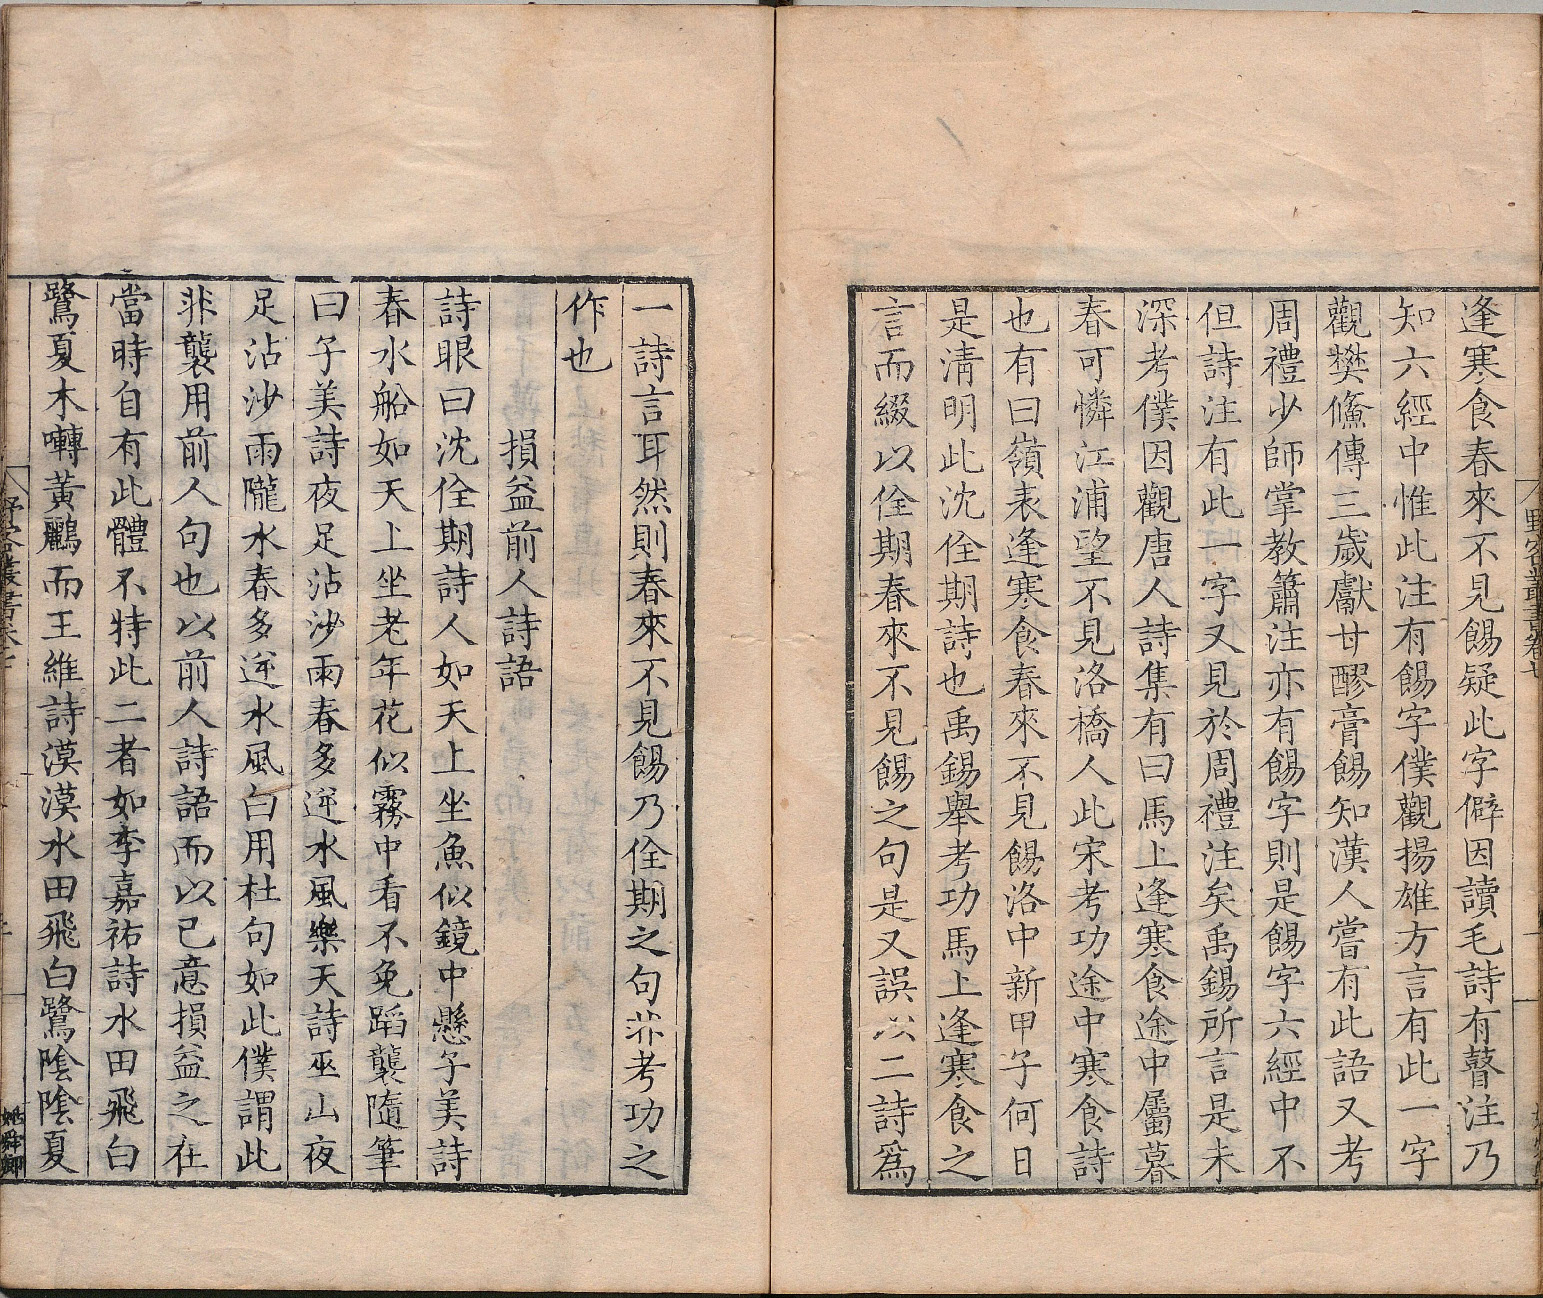 逢寒食春來不見餳疑此字僻因讀毛詩有瞽注乃
知六經中惟此注有餳字僕觀揚雄方言有此一字
觀樊鯈傳三歲獻甘醪膏餳知漢人嘗有此語又考
周禮少師掌教簫注亦有餳字則是餳字六經中不
但詩注有此一字又見於周禮注矣禹錫所言是未
深考僕因觀唐人詩集有曰馬上逢寒食途中屬暮
春可憐江浦望不見洛橋人此宋考功途中寒食詩
也有曰嶺表逢寒食春來不見餳洛中新甲子何日
是淸明此沈佺期詩也禹錫舉考功馬上逢寒食之
言而綴以佺期春來不見餳之句是又誤以二詩爲
一詩言耳然則春來不見餳乃佺期之句非考功之
作也
損益前人詩語
詩眼曰沈佺期詩人如天上坐魚似鏡中懸子美詩
春水船如天上坐老年花似霧中看不免蹈襲隨筆
曰子美詩夜足沾沙雨春多逆水風樂天詩巫山夜
足沾沙雨隴水春多逆水風白用杜句如此僕謂此
非襲用前人句也以前人詩語而以己意損益之在
當時自有此體不特此二者如李嘉祐詩水田飛白
鷺夏木囀黃鸝而王維詩漠漠水田飛白鷺陰陰夏
野客叢書卷七
姚舜卿